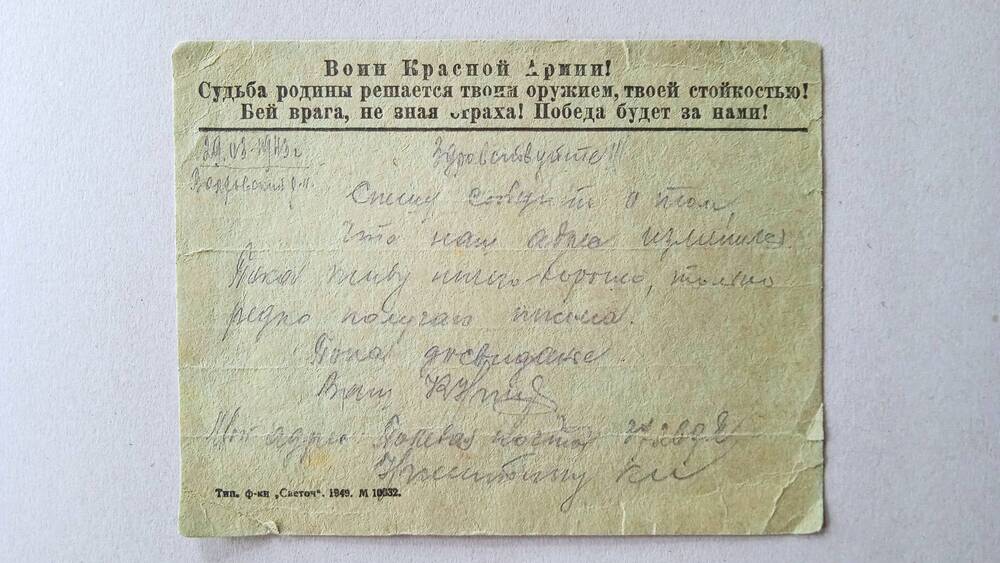 Воин Красной Армии!
Судьба родины решается твоим оружием, твоей стойкостью!
Бей врага, не зная страха! Победа будет за нами!
29.03-1943 г
Здравствуйте!!!
Спешу сообщить о том,
что наш адрес изменился.
Пока живу ничего хорошо, только
редко получаю письма.
Пока досвидание.
Ваш
Мой адрес Полевая почта
Тип. ф-ки „Светоч". 1949. М 10032.